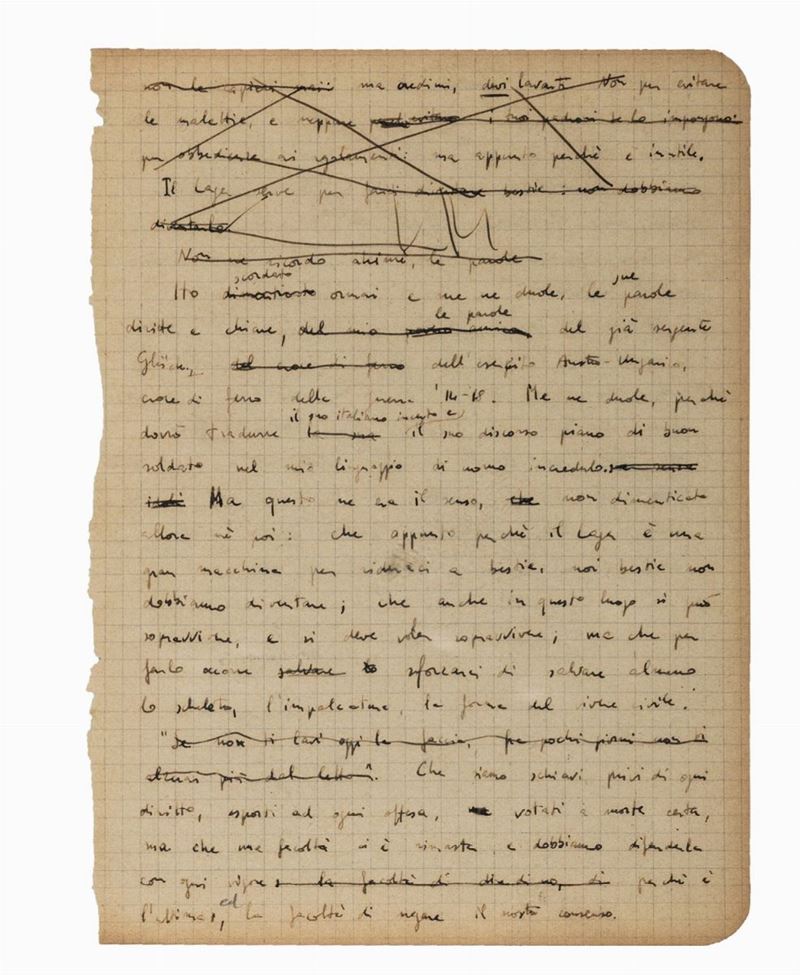 non le capirai mai ma credimi, devi lavarti. Non per evitare
le malattie, e neppure i tuoi padroni te lo impongono:
per obbedienza ai regolamenti: ma appunto perchè è inutile.
Il Lager serve per farci diventare bestie: non dobbiamo
diventarlo.
Non ne ricordo ahimè, le parole
scordato sue
Ho dimenticato ormai e me ne duole, le parole
le parole
diritte e chiare, del mio amico del già sergente
del croce di ferro dell'esercito Austro-Ungarico,
croce di ferro della guerra '14-18. Me ne duole, perchè
il suo italiano incerto e
dovrò tradurre il suo discorso piano di buon
soldato nel mio linguaggio di uomo incredulo.
Ma questo ne era il senso, che non dimenticato
allora nè poi: che appunto perchè il Lager è una
gran macchina per ridurci a bestie, noi bestie non
dobbiamo diventare; che anche in questo luogo si può
sopravvivere, e si deve voler sopravvivere; ma che per
farlo occorre salvare sforzarci di salvare almeno
lo scheletro, l'impalcatura, la forma del vivere civile.
"Se non ti lavi oggi la faccia, fra pochi giorni non ti
alzerai più dal letto". Che siamo schiavi privi di ogni
diritto, esposti ad ogni offesa, votati a morte certa,
ma che una facoltà ci è rimasta, e dobbiamo difenderla
con ogni vigore la facoltà di di perchè è
l'ultima, ed la facoltà di negare il nostro consenso.